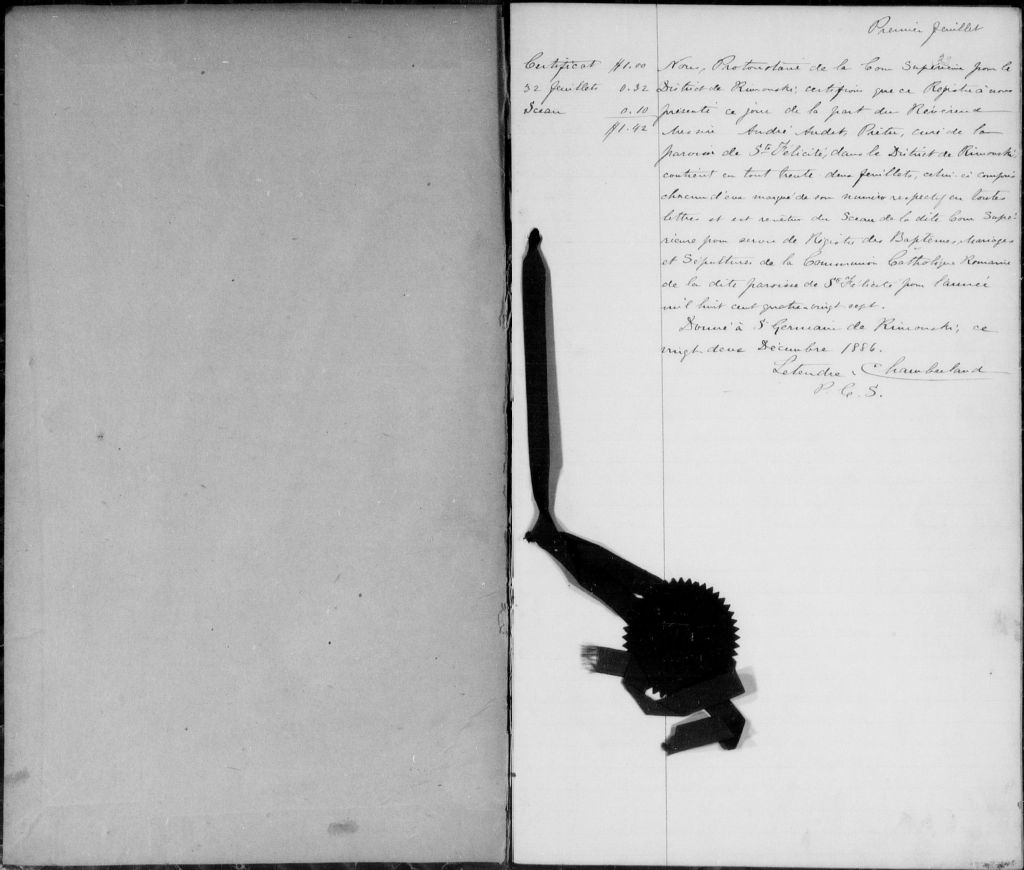 Premier feuillet
Certificat $1.00
32 feuillets 0.32
Sceau 0.10
$1.42
Nous, Protonotaire de la Cour Supérieure pour le
District de Rimouski, certifions que ce Registre à nous
présenté ce jour de la part du Révérend
Messire André Audet, Prêtre, curé de la
paroisse de Ste Félicité, dans le District de Rimouski,
contient en tout trente deux feuillets, celui-ci compris
chacun d'eux marqué de son numéro respectif en toutes
lettres et est revêtu du Sceau de la dite Cour Supé-
rieure pour servir de Régistre des Baptêmes, Mariages
et Sépultures de la Communion Catholique Romaine
de la dite paroisse de Ste Félicité pour l'année
mil huit cent quatre-vingt sept.
Donné à St Germain de Rimouski, ce
vingt-deux Décembre 1886.
Letendre & Chamberland
P. C. S.